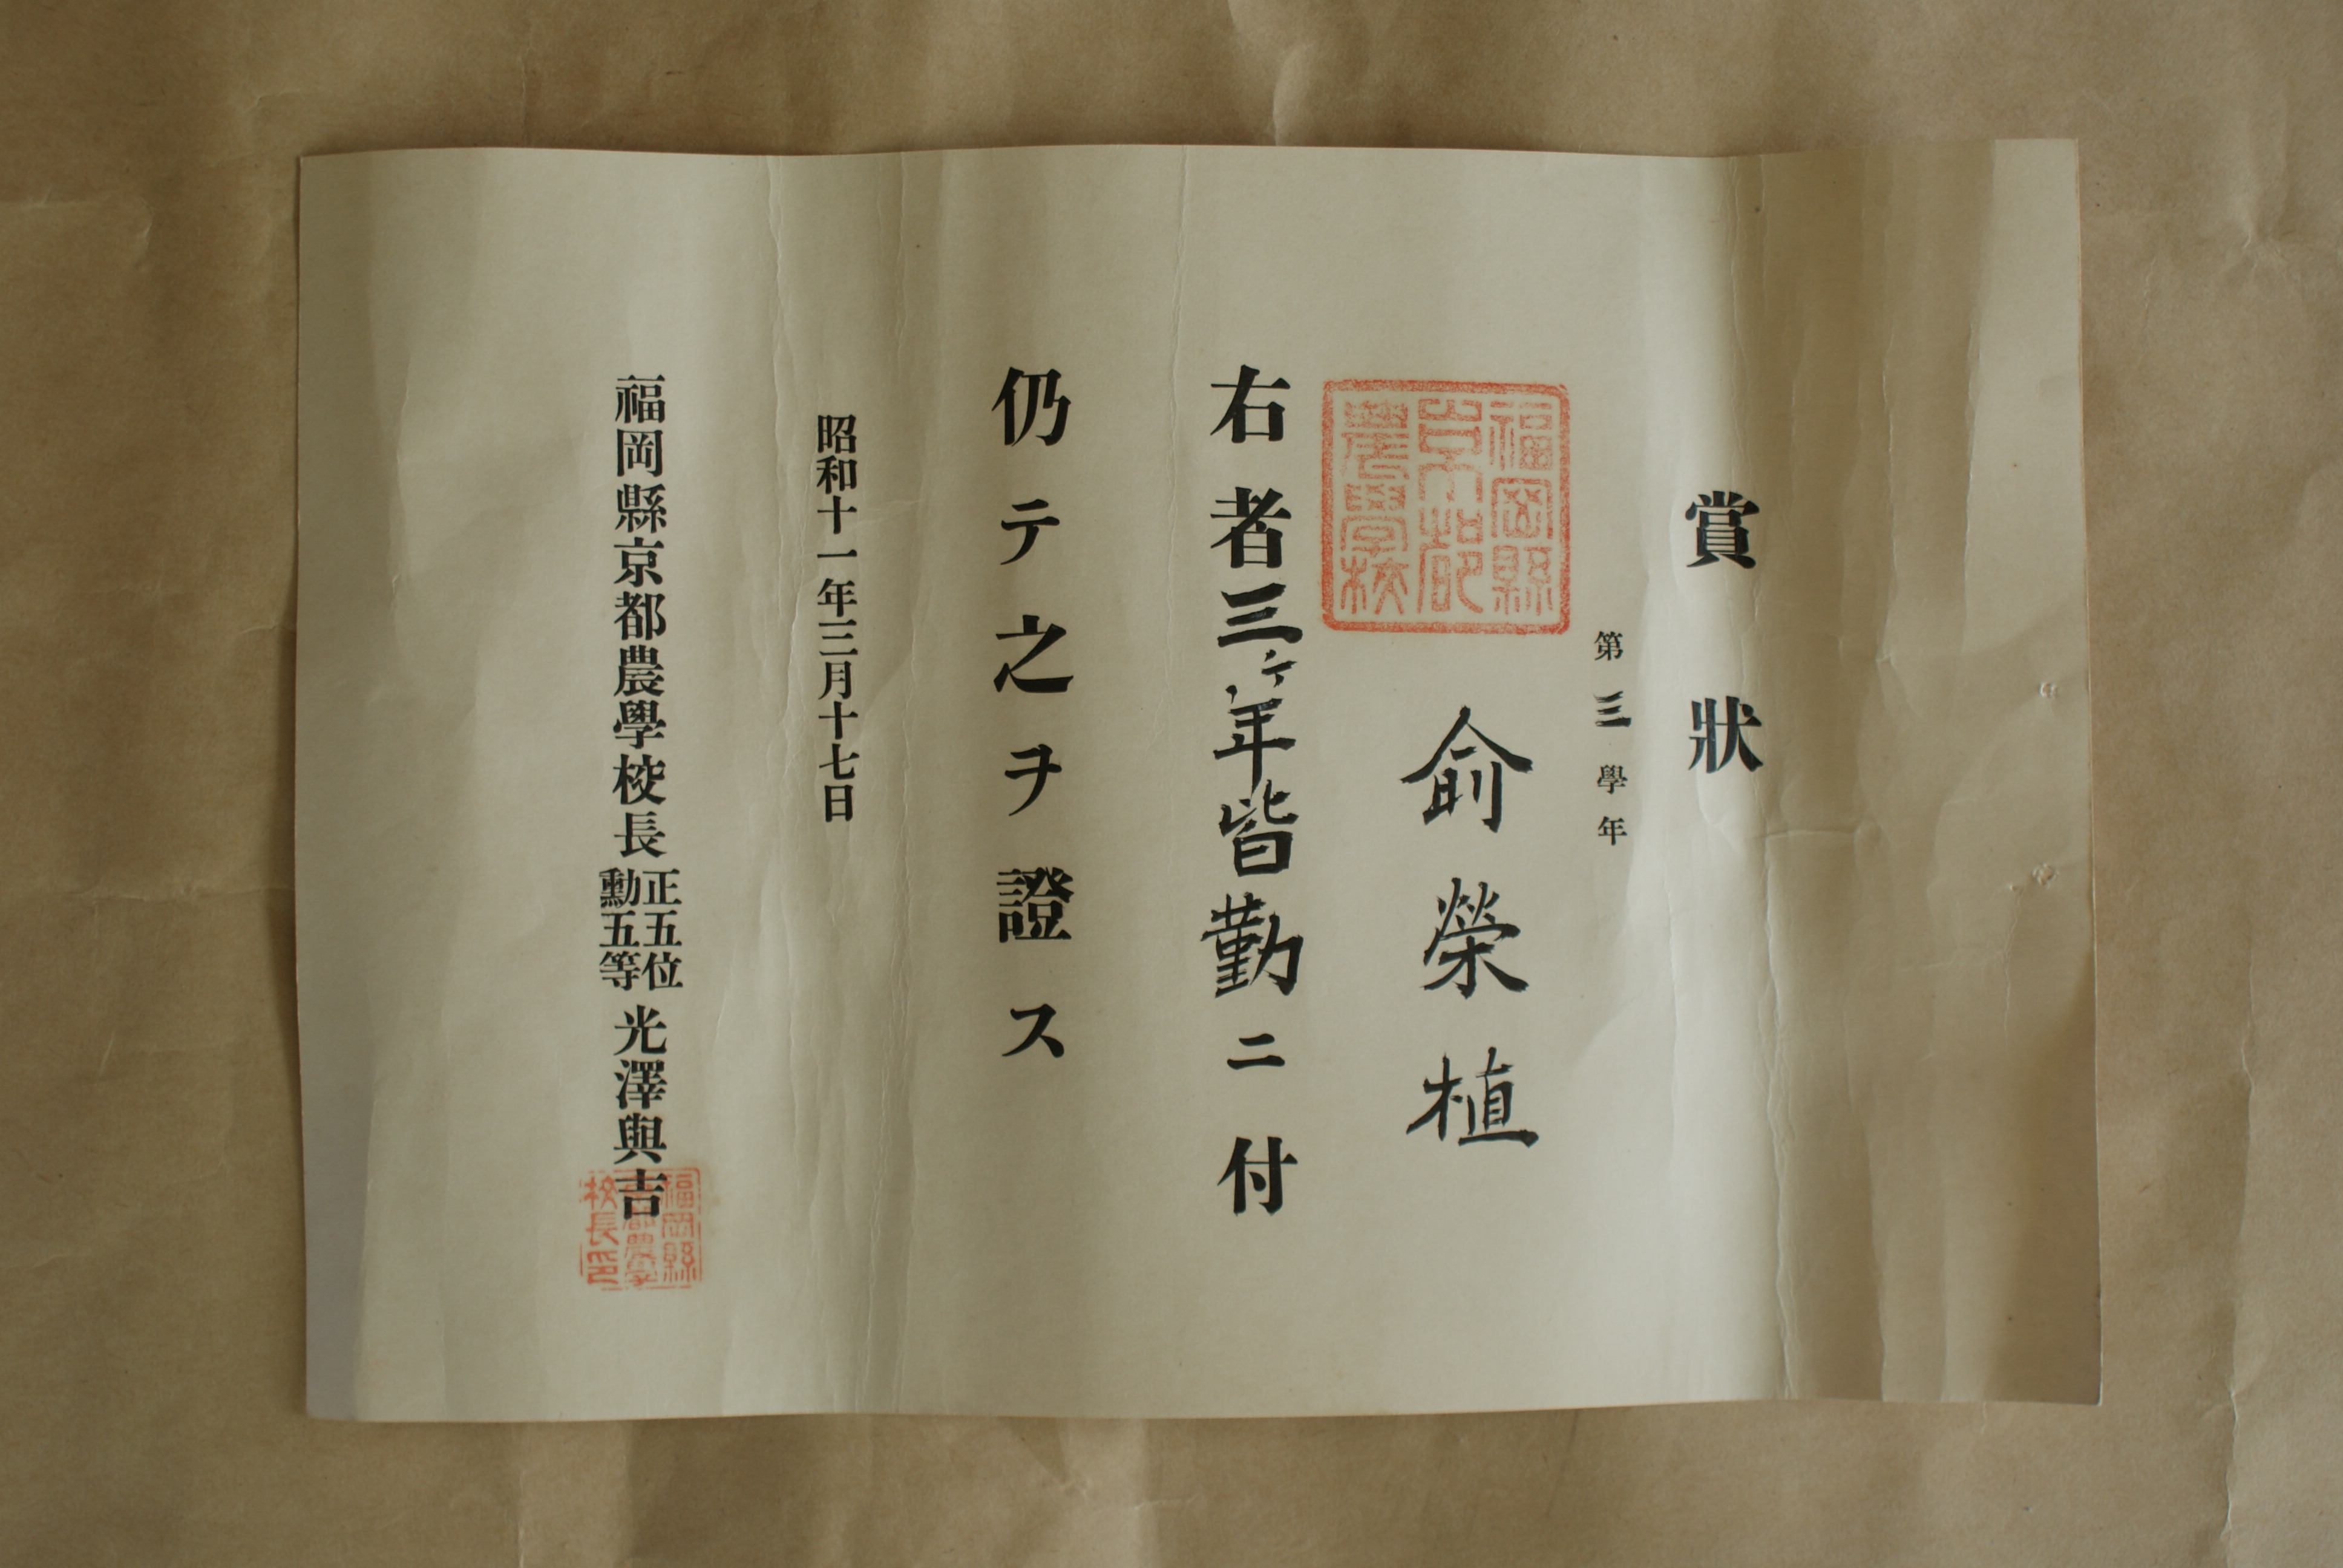 賞狀
第三學年
俞榮植
福岡縣
京都
農學校
右者三ヶ年皆勤ニ付
仍テ之ヲ證ス
昭和十一年三月十七日
福岡縣京都農學校長 正五位 勳五等 光澤與吉
福岡縣
京都農學
校長印